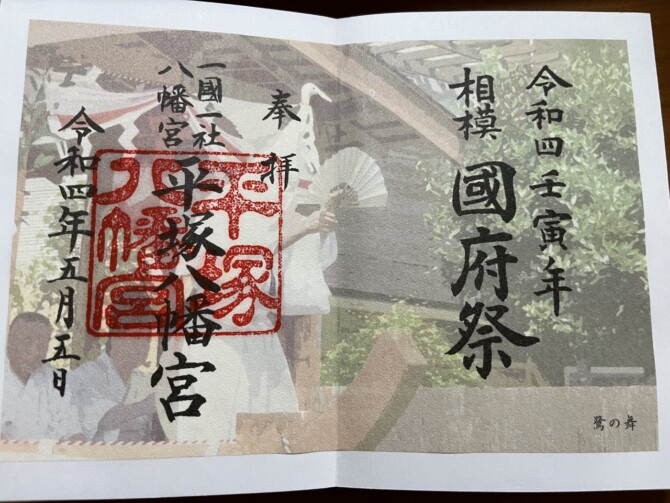 令和四壬寅年
相模 國府祭
鷺の舞
奉拝
一國一社
八幡宮
平塚八幡宮
平塚
八幡宮
令和四年五月五日